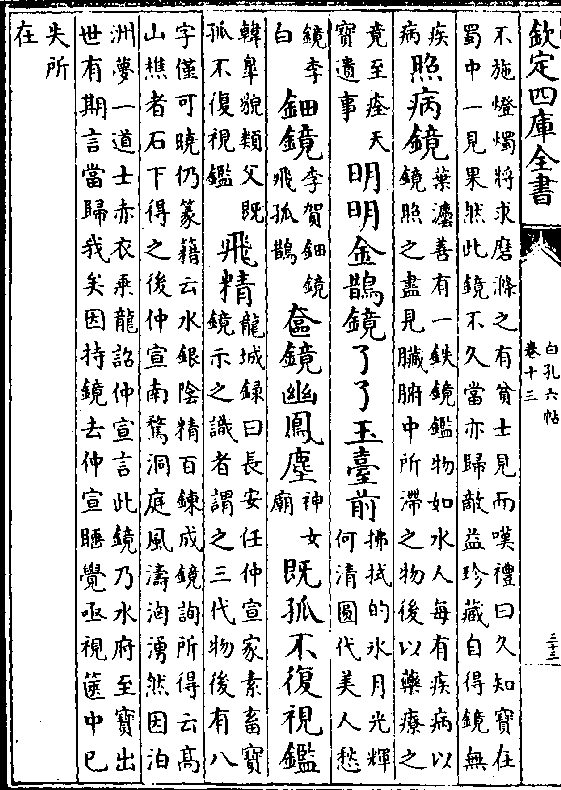 欽定四庫全書
白孔六帖
卷十三
三十三
不施燈燭將求磨滌之有貧士見而嘆禮曰久知寶在
蜀中一見果然此鏡不久當亦歸敵益珍藏自得鏡無
疾
病
照病鏡
葉灋善有一鉄鏡鑑物如水人每有疾病以
鏡照之盡見臟腑中所滯之物後以藥療之
竟至痊天
寶遺事
明明金鵲鏡了了玉臺前
拂拭的氷月光輝
何清圓代美人愁
鏡李
白
鈿鏡
李賀鈿鏡
飛孤鵲
奩鏡幽鳳塵
神女
廟
既孤不復視鑑
韓皋貌類父既
孤不復視鑑
飛精
龍城録曰長安任仲宣家素畜寶
鏡示之識者謂之三代物後有八
字僅可曉仍篆籒云水銀陰精百鍊成鏡詢所得云髙
山樵者石下得之後仲宣南騖洞庭風濤洶湧然因泊
洲夢一道士赤衣乘龍詔仲宣言此鏡乃水府至寶出
世有期言當歸我矣因持鏡去仲宣睡覺亟視篋中已
失所
在